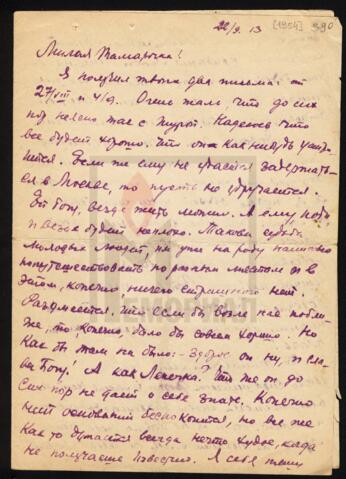 22/9. 13 [1954] 390
Милая Тамарочка!
Я получил твоих два письма: от
27/VIII и 4/9. Очень жаль, что до сих
пор неясно так с Шурой. Надеюсь что
все будет хорошо. Что она как нибудь
нится. Если же ему не удастся задержать-
ся в Москве, то пусть не огорчается.
Ей Богу, везде жить можно. А ему
и везде будет неплохо. Такова судьба
молодых людей, им уж на роду написано
попутешествовать по разным местам и в
этом, конечно, ничего страшного нет.
Разумеется, что если бы возле нас побли-
же, то, конечно, было бы совсем хорошо. Но
как бы там ни было:- здоров он ну, и сла-
ва Богу! А как Леночка? Что же он до
сих пор не дает о себе знать. Конечно
нет оснований беспокоится, но все же
как то думается всегда нечто худое, когда
не получаешь известий. Я себя тешу
МЕМОРИАЛ